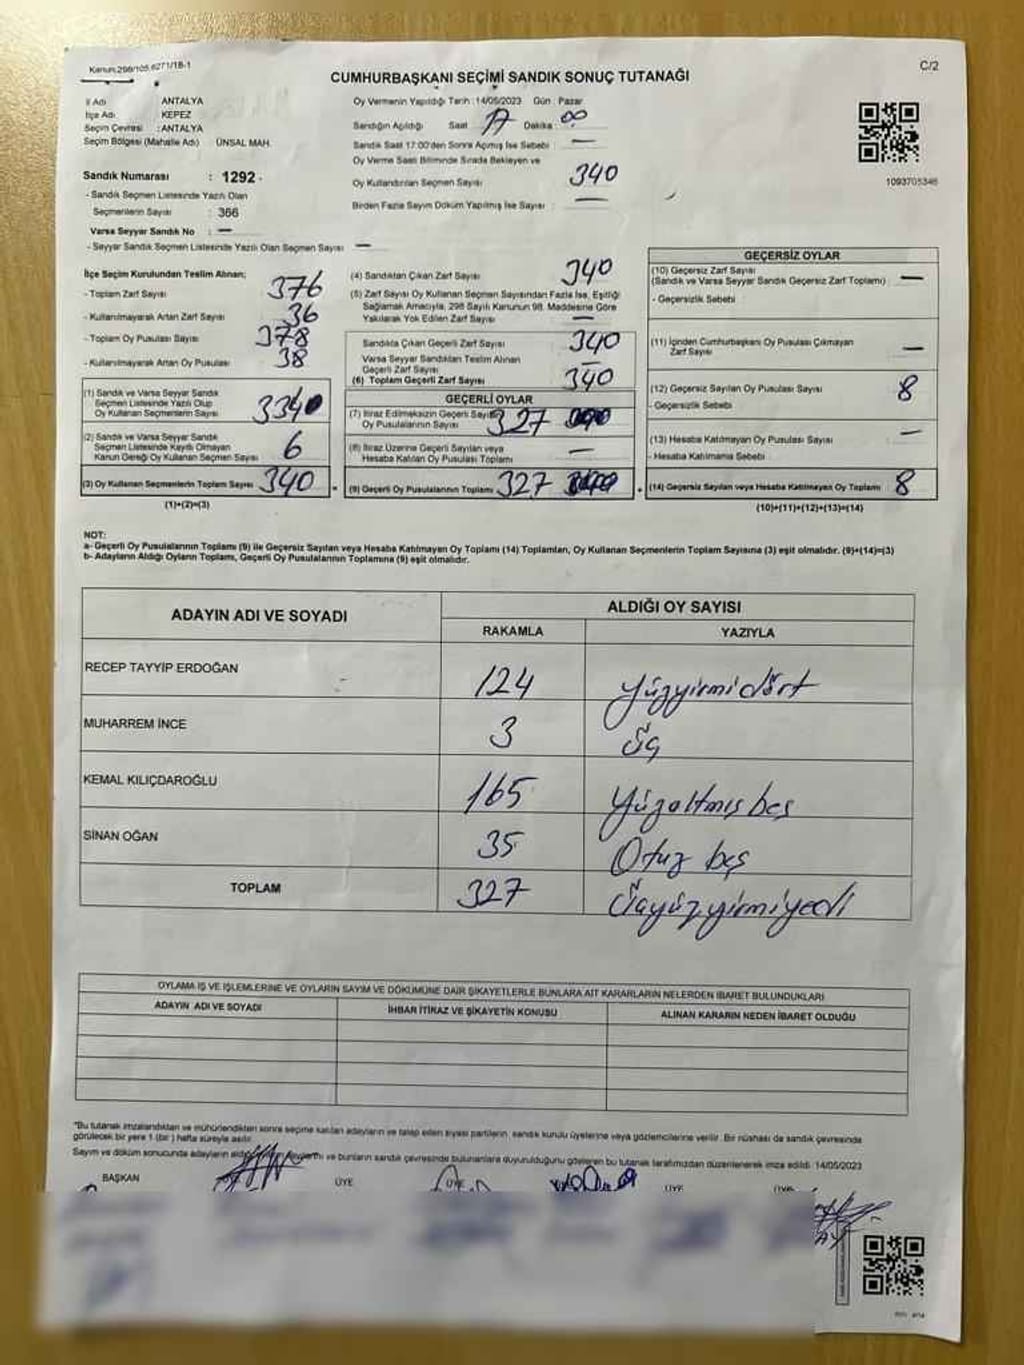 Kanun:298/105,6271/18-1
C/2
CUMHURBAŞKANI SEÇİMİ SANDIK SONUÇ TUTANAĞI
İl Adı ANTALYA
İlçe Adı KEPEZ
Seçim Çevresi : ANTALYA
Seçim Bölgesi (Mahalle Adı) ÜNSAL MAH.
Sandık Numarası : 1292
- Sandık Seçmen Listesinde Yazılı Olan
Seçmenlerin Sayısı : 366
Varsa Seyyar Sandık No : —
- Seyyar Sandık Seçmen Listesinde Yazılı Olan Seçmen Sayısı —
Oy Vermenin Yapıldığı Tarih : 14/05/2023 Gün : Pazar
Sandığın Açıldığı Saat 17 Dakika : 00
Sandık Saat 17:00'den Sonra Açımış İse Sebebi : —
Oy Verme Saati Bitiminde Sırada Bekleyen ve
Oy Kullandırılan Seçmen Sayısı 340
Birden Fazla Sayım Döküm Yapılmış İse Sayısı : —
1093705346
İlçe Seçim Kurulundan Teslim Alınan;
- Toplam Zarf Sayısı 376
- Kullanılmayarak Artan Zarf Sayısı 36
- Toplam Oy Pusulası Sayısı 378
- Kullanılmayarak Artan Oy Pusulası 38
(1) Sandık ve Varsa Seyyar Sandık
Seçmen Listesinde Yazılı Olup
Oy Kullanan Seçmenlerin Sayısı 3340
(2) Sandık ve Varsa Seyyar Sandık
Seçmen Listesinde Kayıtlı Olmayan
Kanun Gereği Oy Kullanan Seçmen Sayısı 6
(3) Oy Kullanan Seçmenlerin Toplam Sayısı 340
(1)+(2)=(3)
(4) Sandıktan Çıkan Zarf Sayısı 340
(5) Zarf Sayısı Oy Kullanan Seçmen Sayısından Fazla İse, Eşitliği
Sağlamak Amacıyla, 298 Sayılı Kanunun 98. Maddesine Göre
Yakılarak Yok Edilen Zarf Sayısı —
Sandıkta Çıkan Geçerli Zarf Sayısı 340
Varsa Seyyar Sandıktan Teslim Alınan
Geçerli Zarf Sayısı —
(6) Toplam Geçerli Zarf Sayısı 340
GEÇERLİ OYLAR
(7) İtiraz Edilmeksizin Geçerli Sayılan
Oy Pusulalarının Sayısı 327
(8) İtiraz Üzerine Geçerli Sayılan veya
Hesaba Katılan Oy Pusulası Toplamı —
(9) Geçerli Oy Pusulalarının Toplamı 327
GEÇERSİZ OYLAR
(10) Geçersiz Zarf Sayısı
(Sandık ve Varsa Seyyar Sandık Geçersiz Zarf Toplamı) —
- Geçersizlik Sebebi
(11) İçinden Cumhurbaşkanı Oy Pusulası Çıkmayan
Zarf Sayısı —
(12) Geçersiz Sayılan Oy Pusulası Sayısı 8
- Geçersizlik Sebebi
(13) Hesaba Katılmayan Oy Pusulası Sayısı —
- Hesaba Katılmama Sebebi
(14) Geçersiz Sayılan veya Hesaba Katılmayan Oy Toplamı 8
(10)+(11)+(12)+(13)=(14)
NOT:
a- Geçerli Oy Pusulalarının Toplamı (9) ile Geçersiz Sayılan veya Hesaba Katılmayan Oy Toplamı (14) Toplamları, Oy Kullanan Seçmenlerin Toplam Sayısına (3) eşit olmalıdır. (9)+(14)=(3)
b- Adayların Aldığı Oyların Toplamı, Geçerli Oy Pusulalarının Toplamına (9) eşit olmalıdır.
ADAYIN ADI VE SOYADI ALDIĞI OY SAYISI
RAKAMLA YAZIYLA
RECEP TAYYİP ERDOĞAN 124 Yüzyirmidört
MUHARREM İNCE 3 Üç
KEMAL KILIÇDAROĞLU 165 Yüzaltmışbeş
SİNAN OĞAN 35 Otuz beş
TOPLAM 327 Üçyüzyirmiyedi
OYLAMA İŞ VE İŞLEMLERİNE VE OYLARIN SAYIM VE DÖKÜMÜNE DAİR ŞİKAYETLERLE BUNLARA AİT KARARLARIN NELERDEN İBARET BULUNDUKLARI
ADAYIN ADI VE SOYADI İHBAR İTİRAZ VE ŞİKAYETİN KONUSU ALINAN KARARIN NEDEN İBARET OLDUĞU
*Bu tutanak imzalandıktan ve mühürlendikten sonra seçime katılan adayların ve talep eden siyasi partilerin, sandık kurulu üyelerine veya gözlemcilerine verilir. Bir nüshası da sandık çevresinde
görülecek bir yere 1 (bir) hafta süreyle asılır.
Sayım ve döküm sonucunda adayların ve bunların sandık çevresinde bulunanlara duyurulduğunu gösteren bu tutanak tarafımızdan düzenlenerek imza edildi. 14/05/2023
BAŞKAN ÜYE ÜYE ÜYE ÜYE